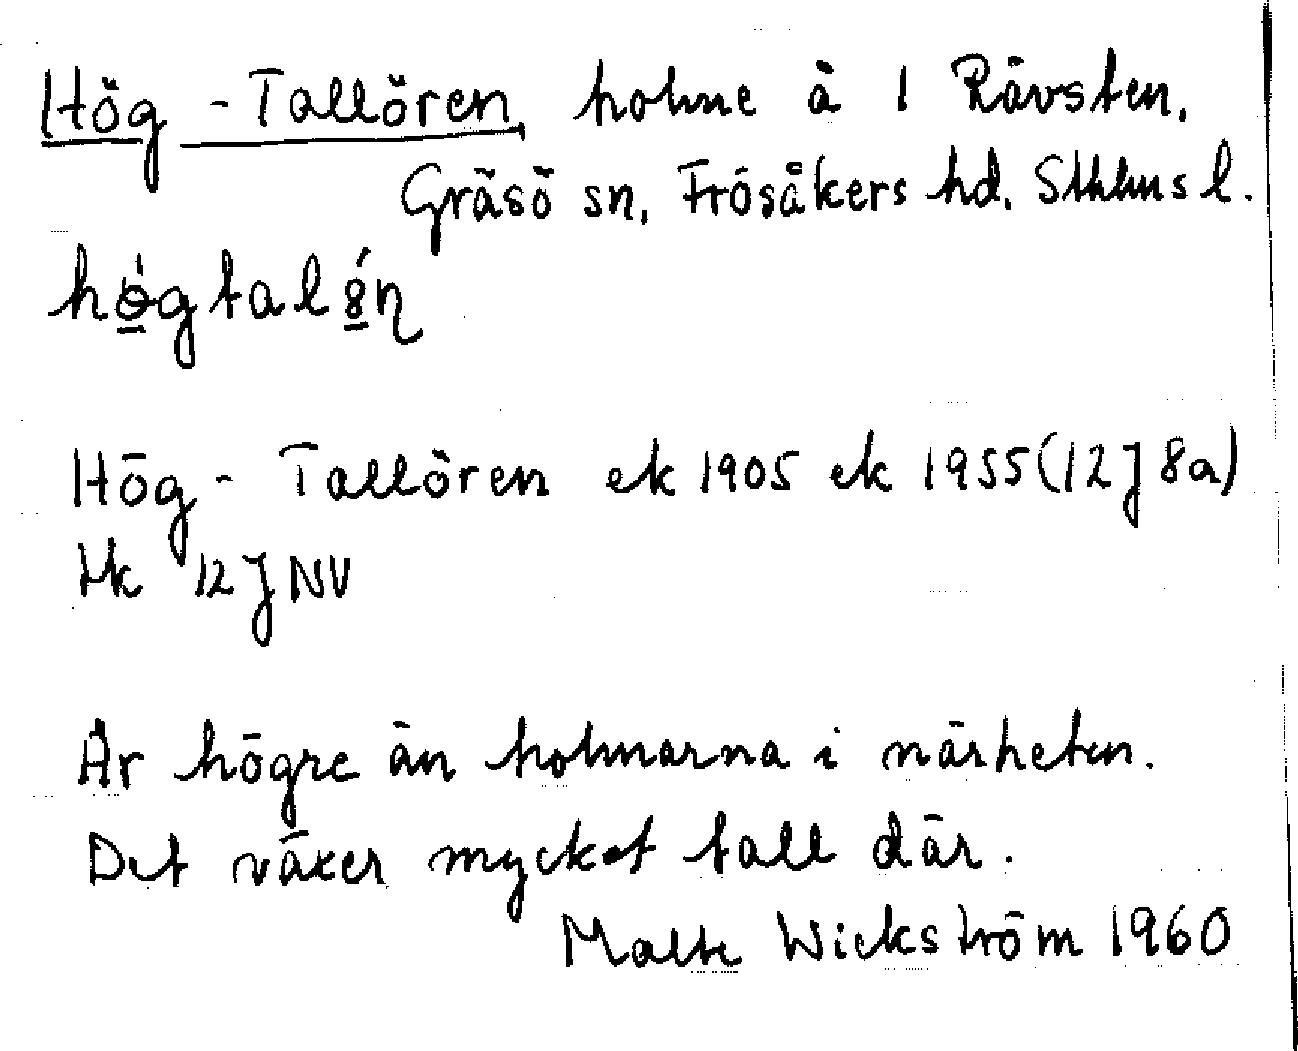 Hög-Tallören, holme å 1 Rävsten,
Gräsö sn, Frösåkers hd, Sthlms l.
hö́gtal8́η
Hög-Tallören ek 1905 ek 1955 (12J 8a)
Hk 12J NV
Är högre än holmarna i närheten.
Det växer mycket tall där.
Malte Wickström 1960